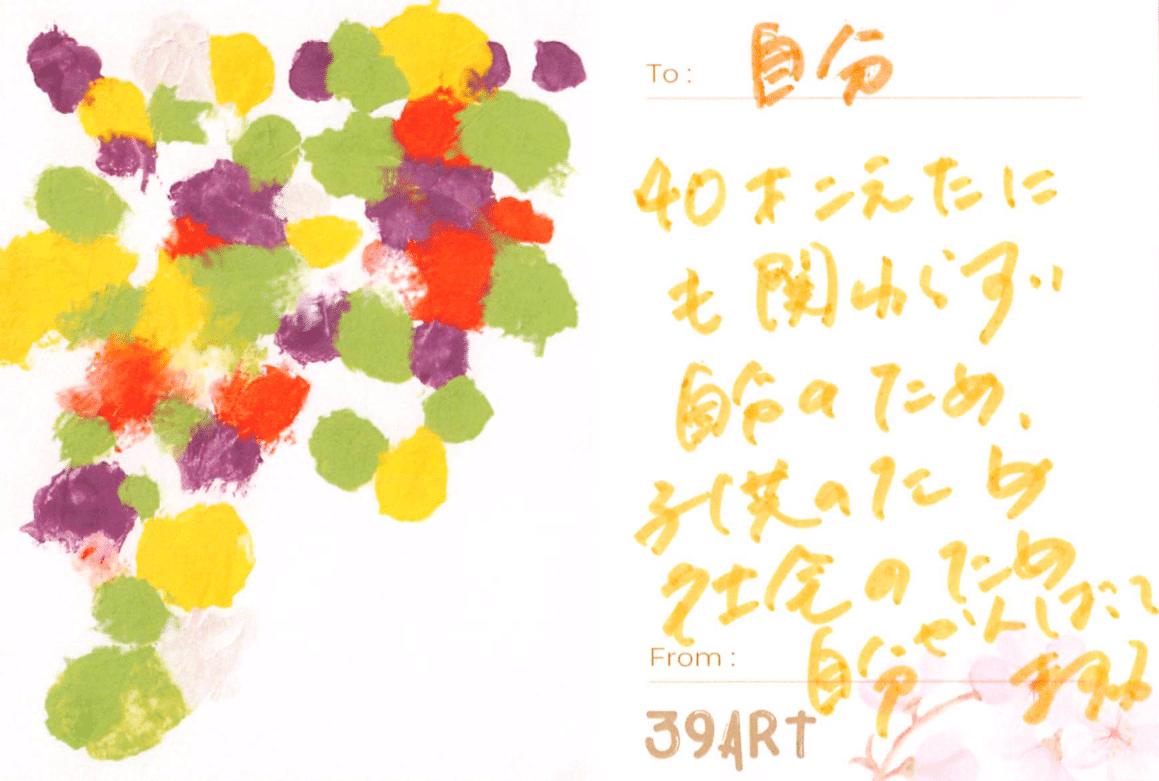 To : 自分
40才こえたに
も関わらず、
自分のため、
子供のため
社会のため
From : 自分
39ART